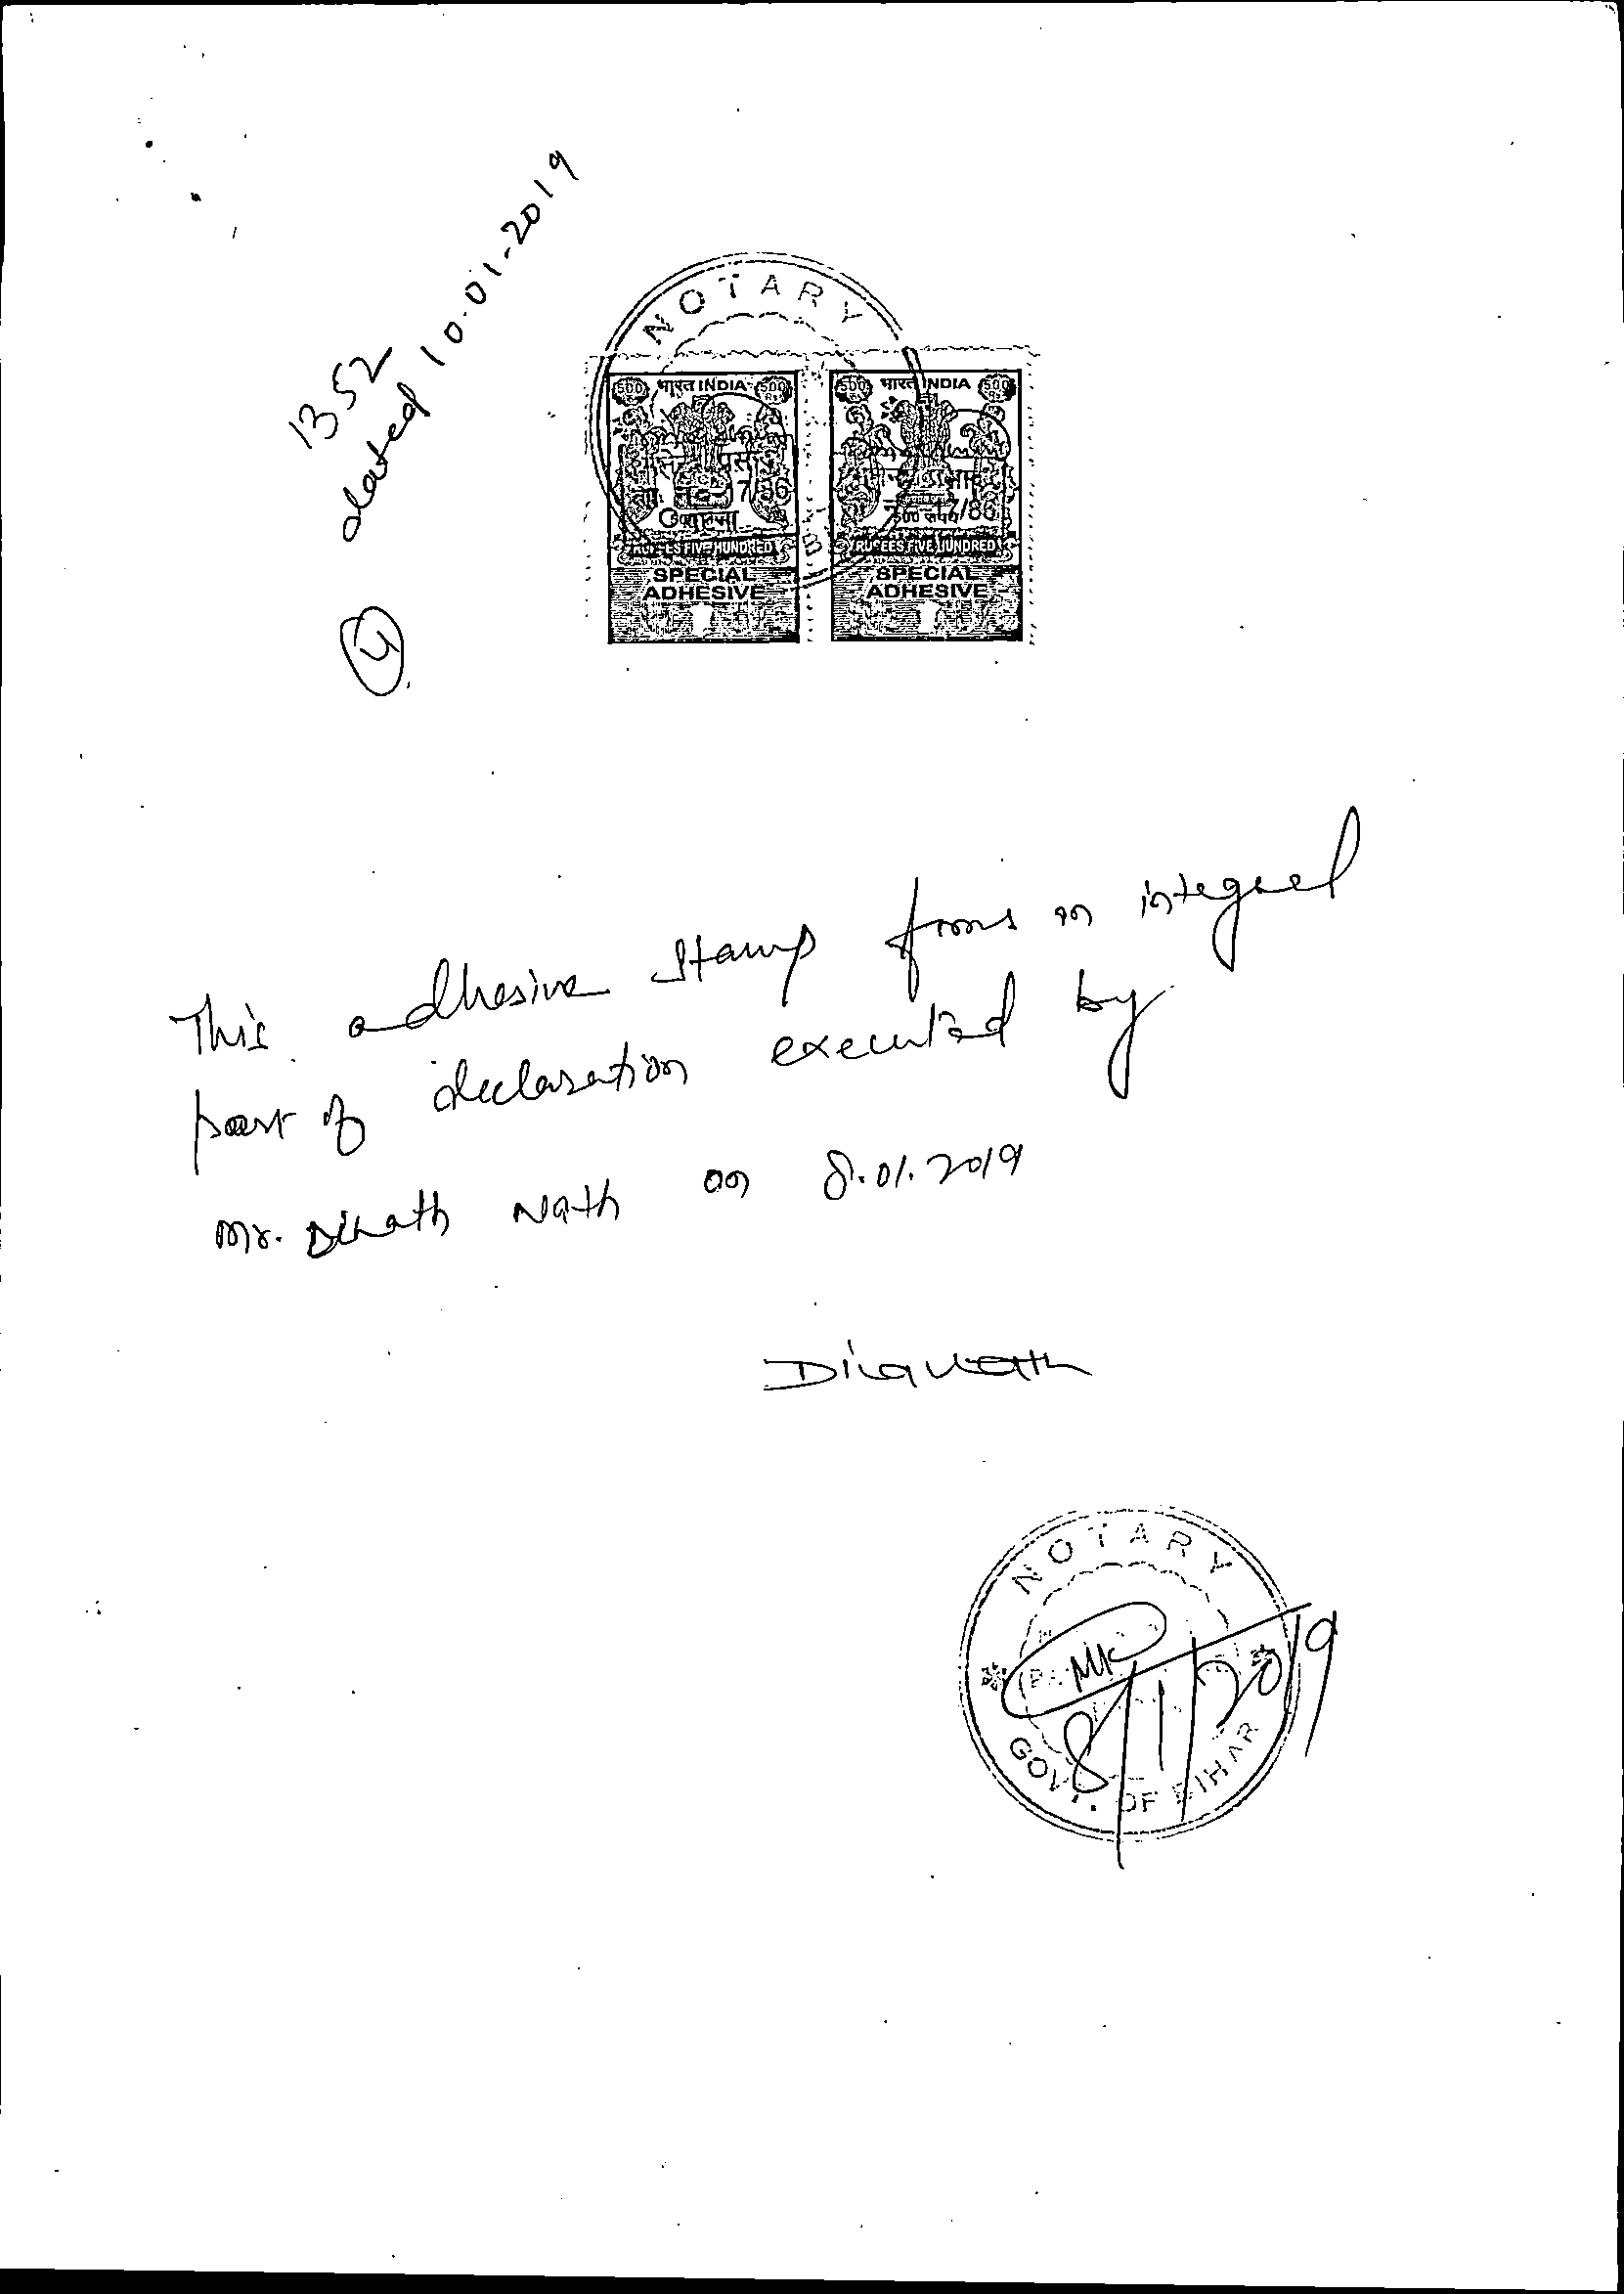 1352
dated 10-01-2019
4
NOTARY
500 भारत INDIA 500
17/86
RUPEES FIVE HUNDRED
SPECIAL
ADHESIVE
500 भारत INDIA 500
500 रुपये 17/86
RUPEES FIVE HUNDRED
SPECIAL
ADHESIVE
This adhesive stamp forms an integral
part of declaration executed by
Mr. Dinath Nath on 8.01.2019
NOTARY
8/1/2019
GOVT. OF BIHAR